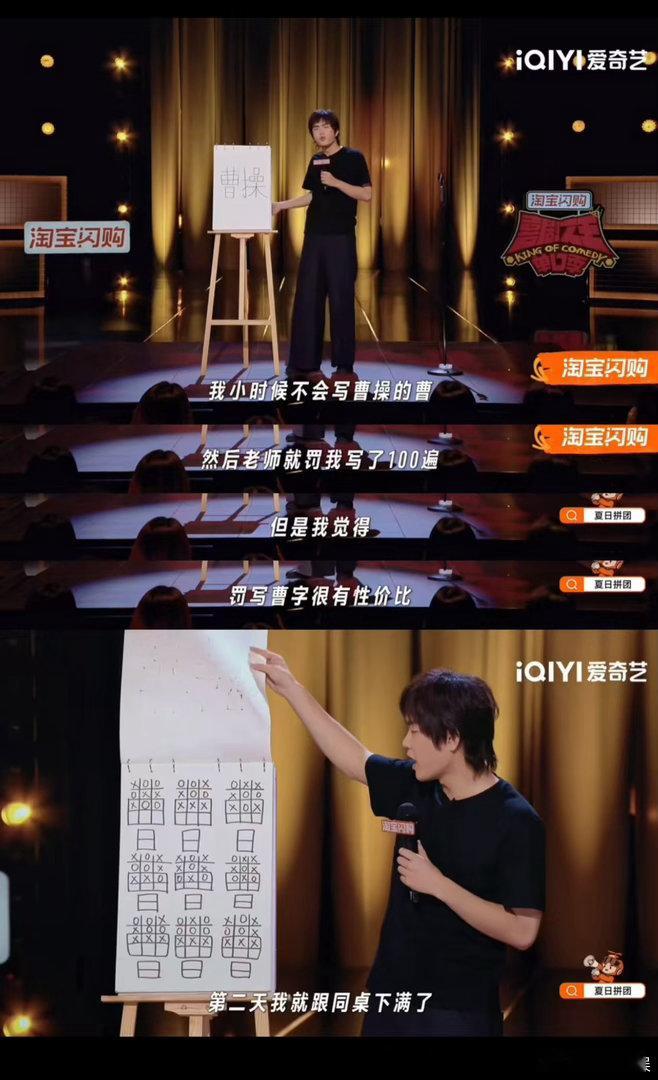 iQIYI 爱奇艺
曹操
淘宝闪购
淘宝闪购
喜剧之王
KING OF COMEDY
淘宝闪购
我小时候不会写曹操的曹
淘宝闪购
然后老师就罚我写了100遍
夏日拼团
但是我觉得
夏日拼团
罚写曹字很有性价比
iQIYI 爱奇艺
淘宝闪购
日 日 日
日 日 日
日 日 日
夏日拼团
第二天我就跟同桌下满了